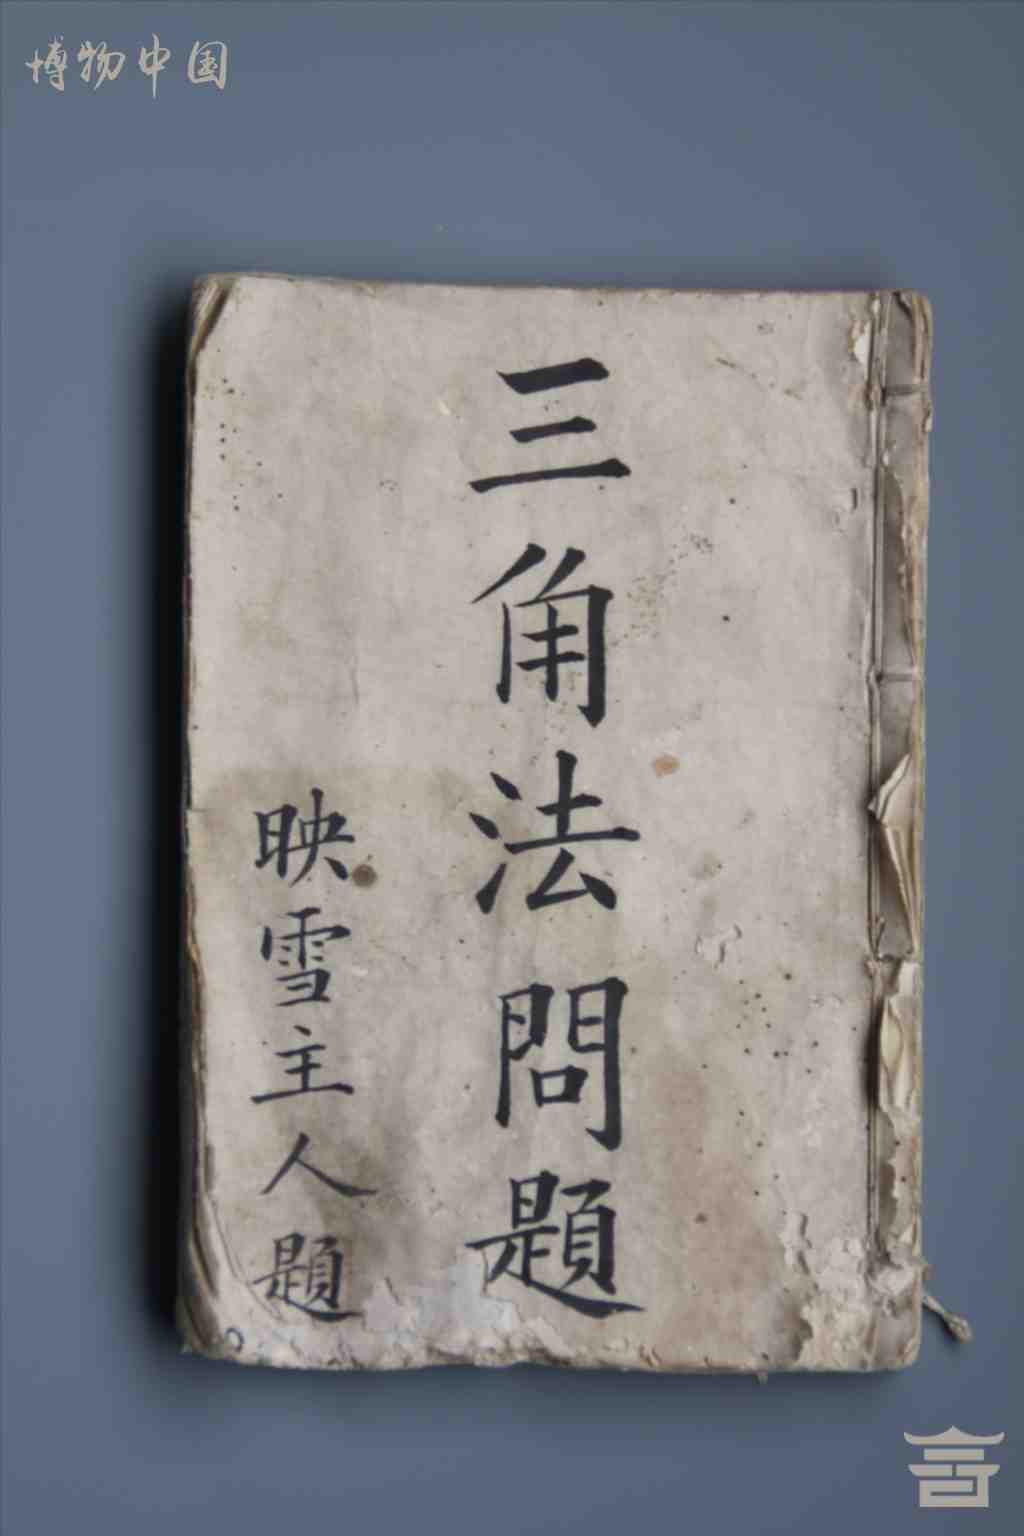 博物中国
三角法問題
映雪主人題